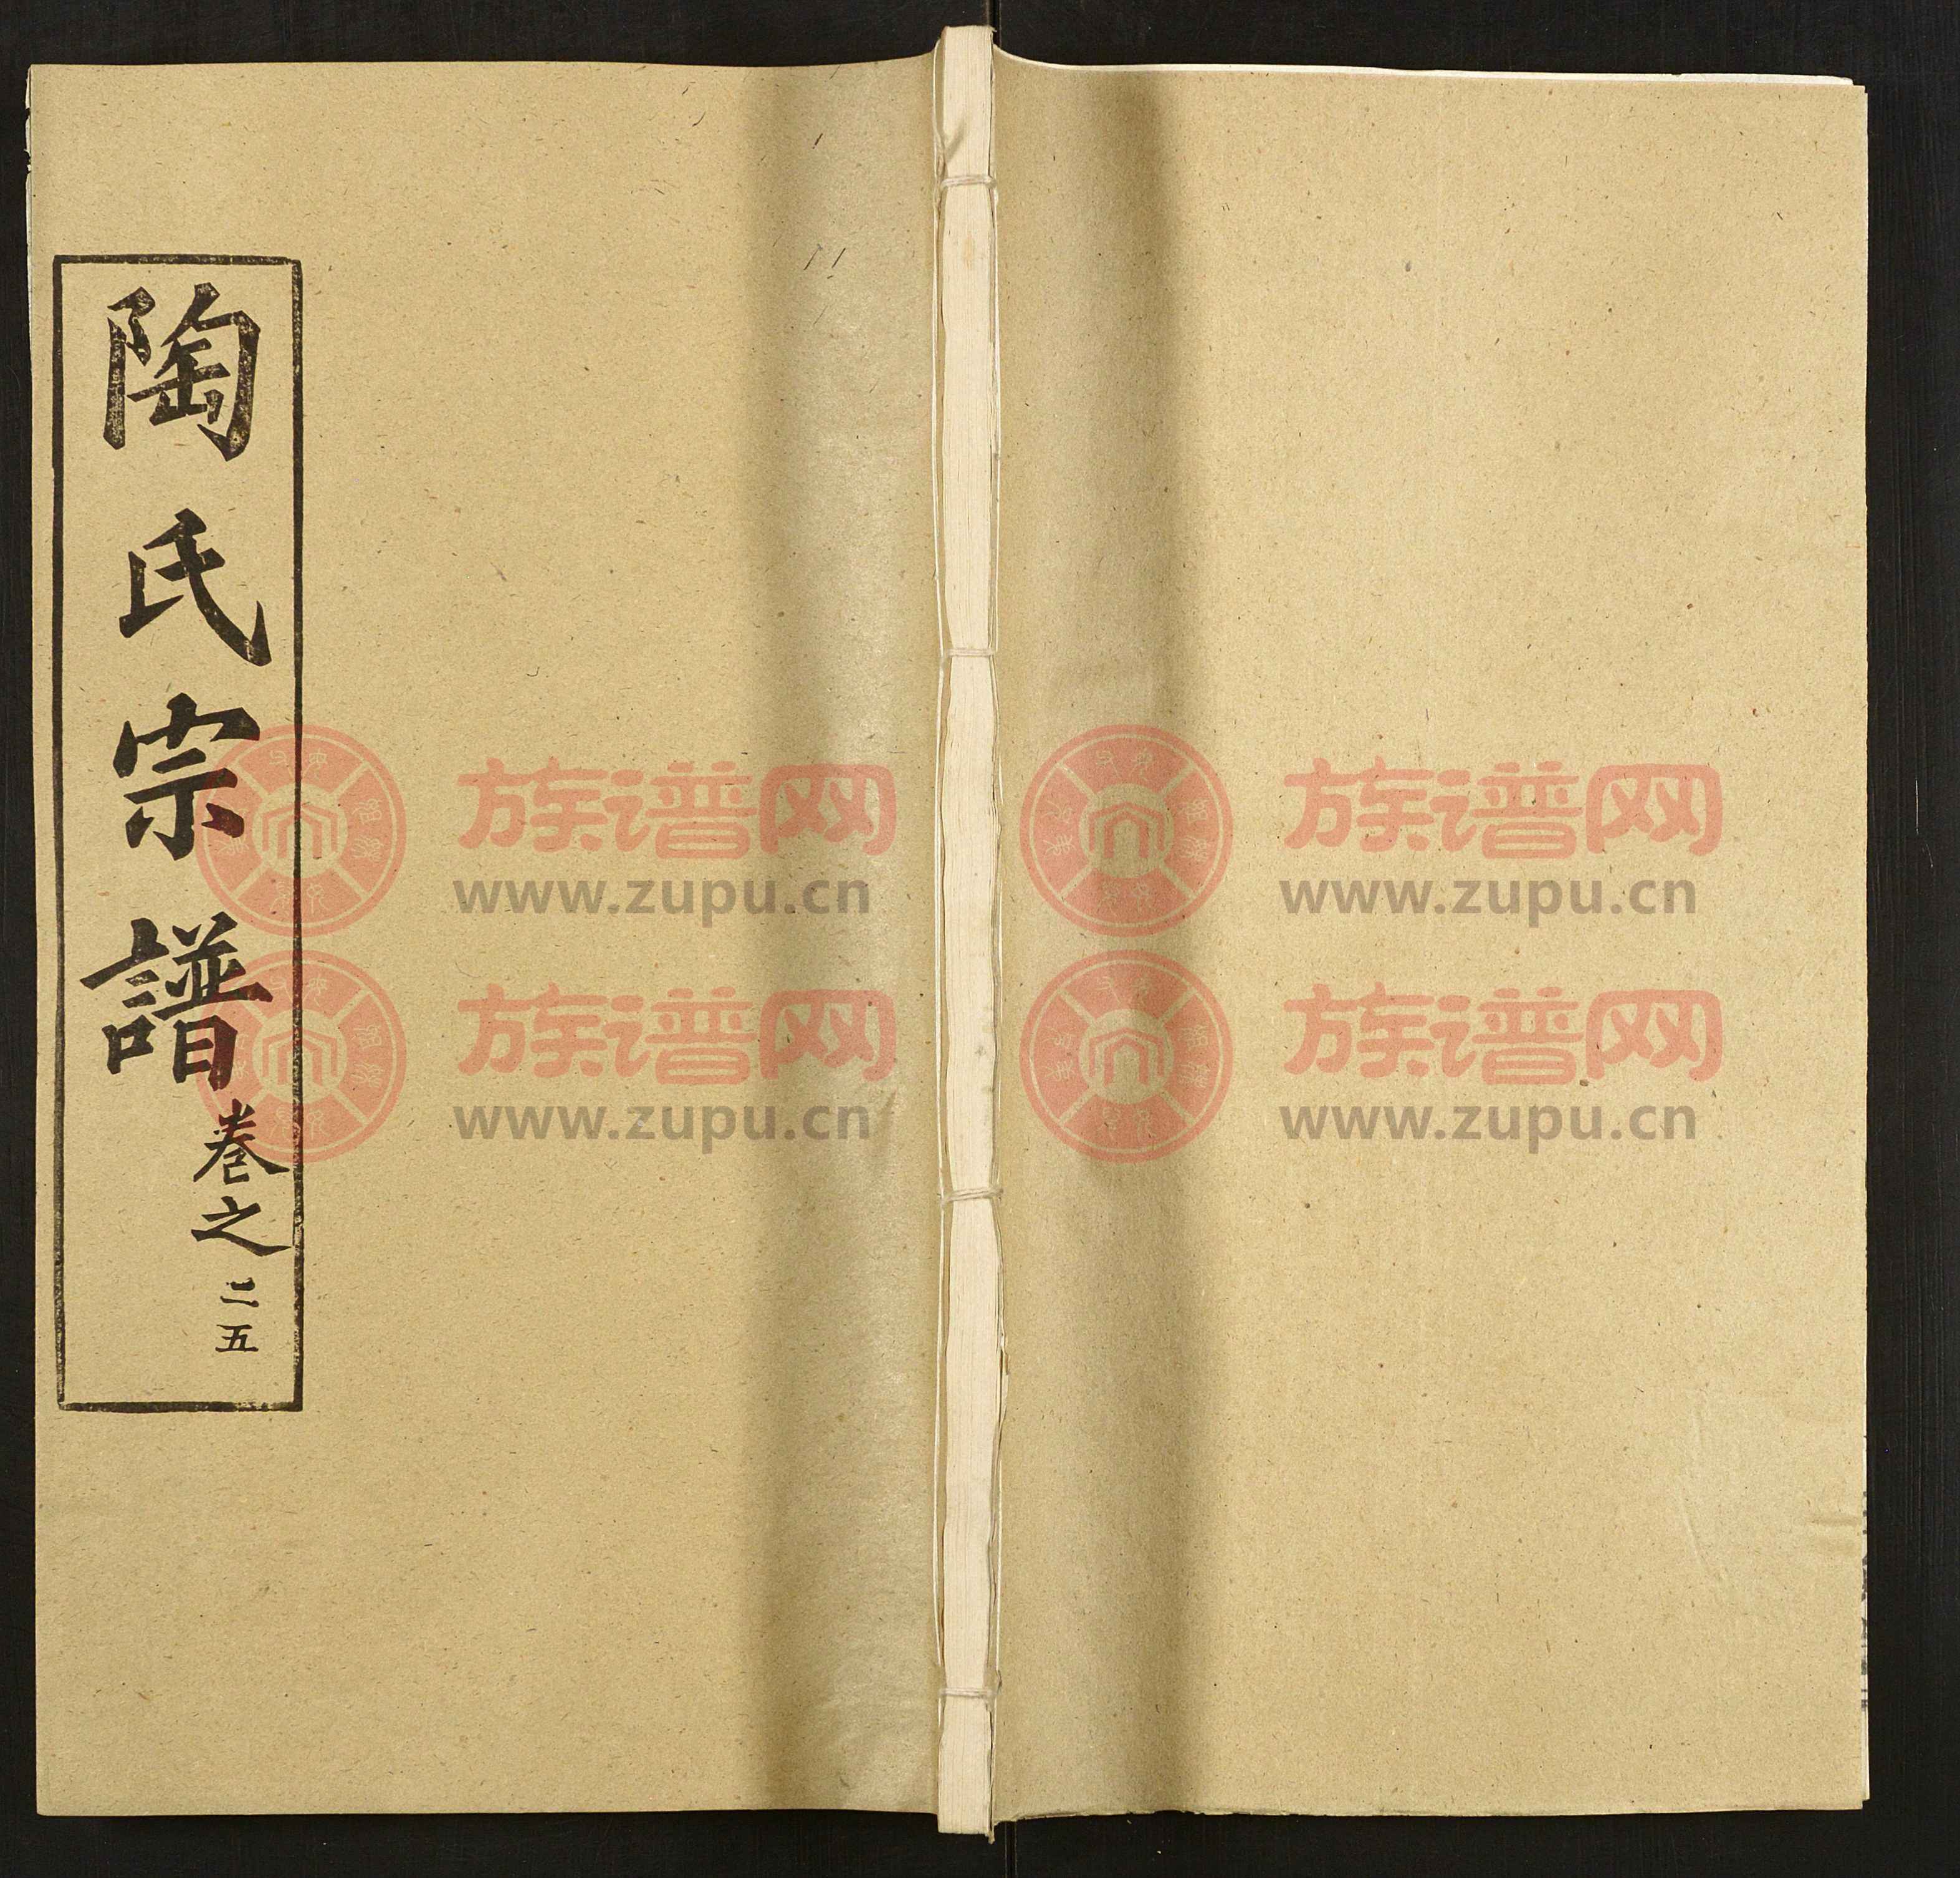 陶氏宗譜
卷之二五
族谱网 族谱网
www.zupu.cn www.zupu.cn
族谱网 族谱网
www.zupu.cn www.zupu.cn